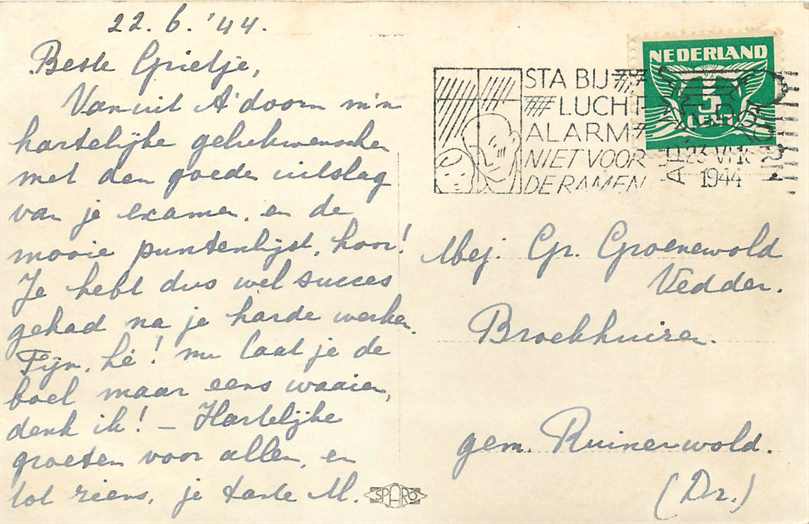 22.6.'44.
Beste Grietje,
Vanuit A'doorn m'n
hartelijke gelukwenschen
met den goede uitslag
van je examen, en de
mooie puntenlijst, hoor!
Je hebt dus wel succes
gehad na je harde werken.
Fijn, hè! nu laat je de
boel maar eens waaien,
denk ik! — Hartelijke
groeten voor allen, en
tot ziens, je tante M.
SPARO
NEDERLAND
5
CENT
STA BIJ
LUCHT
ALARM
NIET VOOR
DE RAMEN
23 VI 18
1944
Mej. Gr. Groenewold
Vedder.
Broekhuizen.
gem. Ruinerwold.
(Dr.)